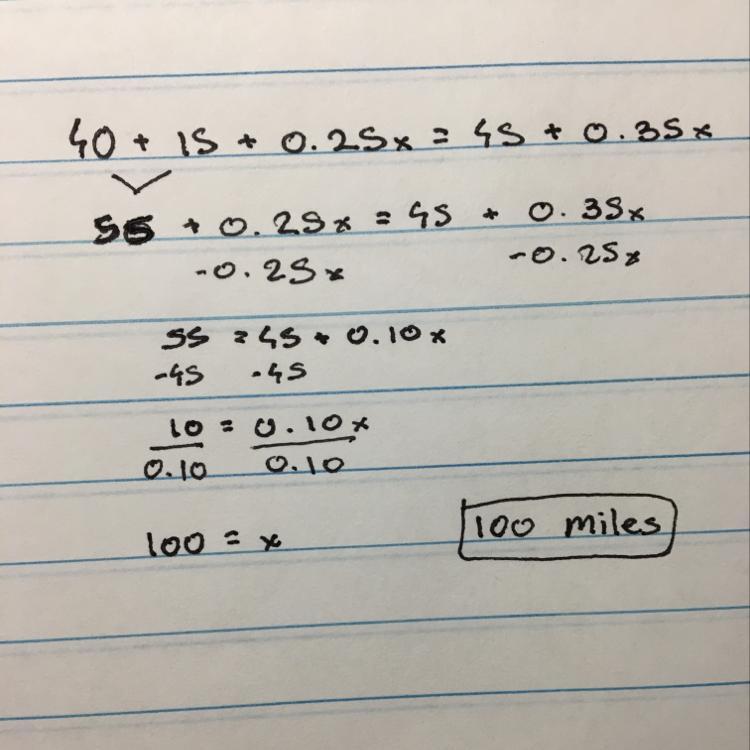 40 + 15 + 0.25x = 45 + 0.35x
55 + 0.25x = 45 + 0.35x
-0.25x -0.25x
55 = 45 + 0.10x
-45 -45
10 = 0.10x
0.10 0.10
100 = x
100 miles